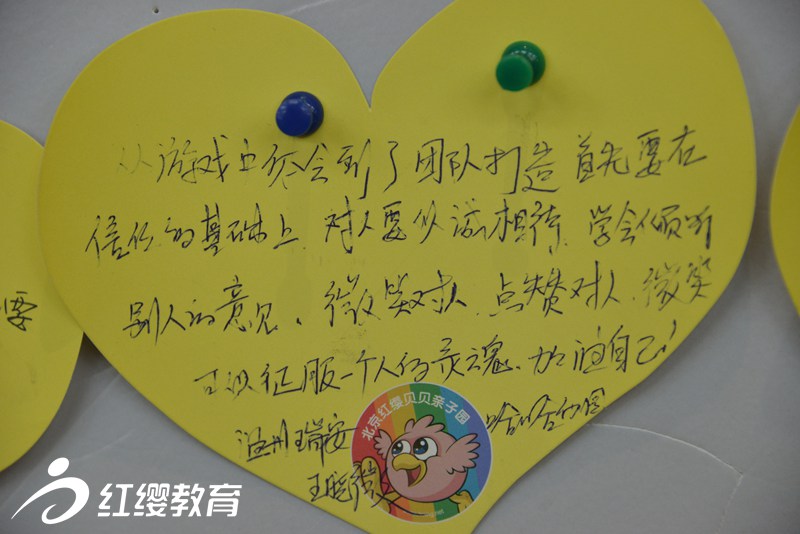 从游戏中体会到了团队打造首先要在
信任的基础上,对人要以诚相待,学会倾听
别人的意见、微笑对人、点赞对人、微笑
可以征服一个人的灵魂、加油自己!
温州瑞安
哈哈幼园
王
北京红缨贝贝亲子园
要
红缨教育